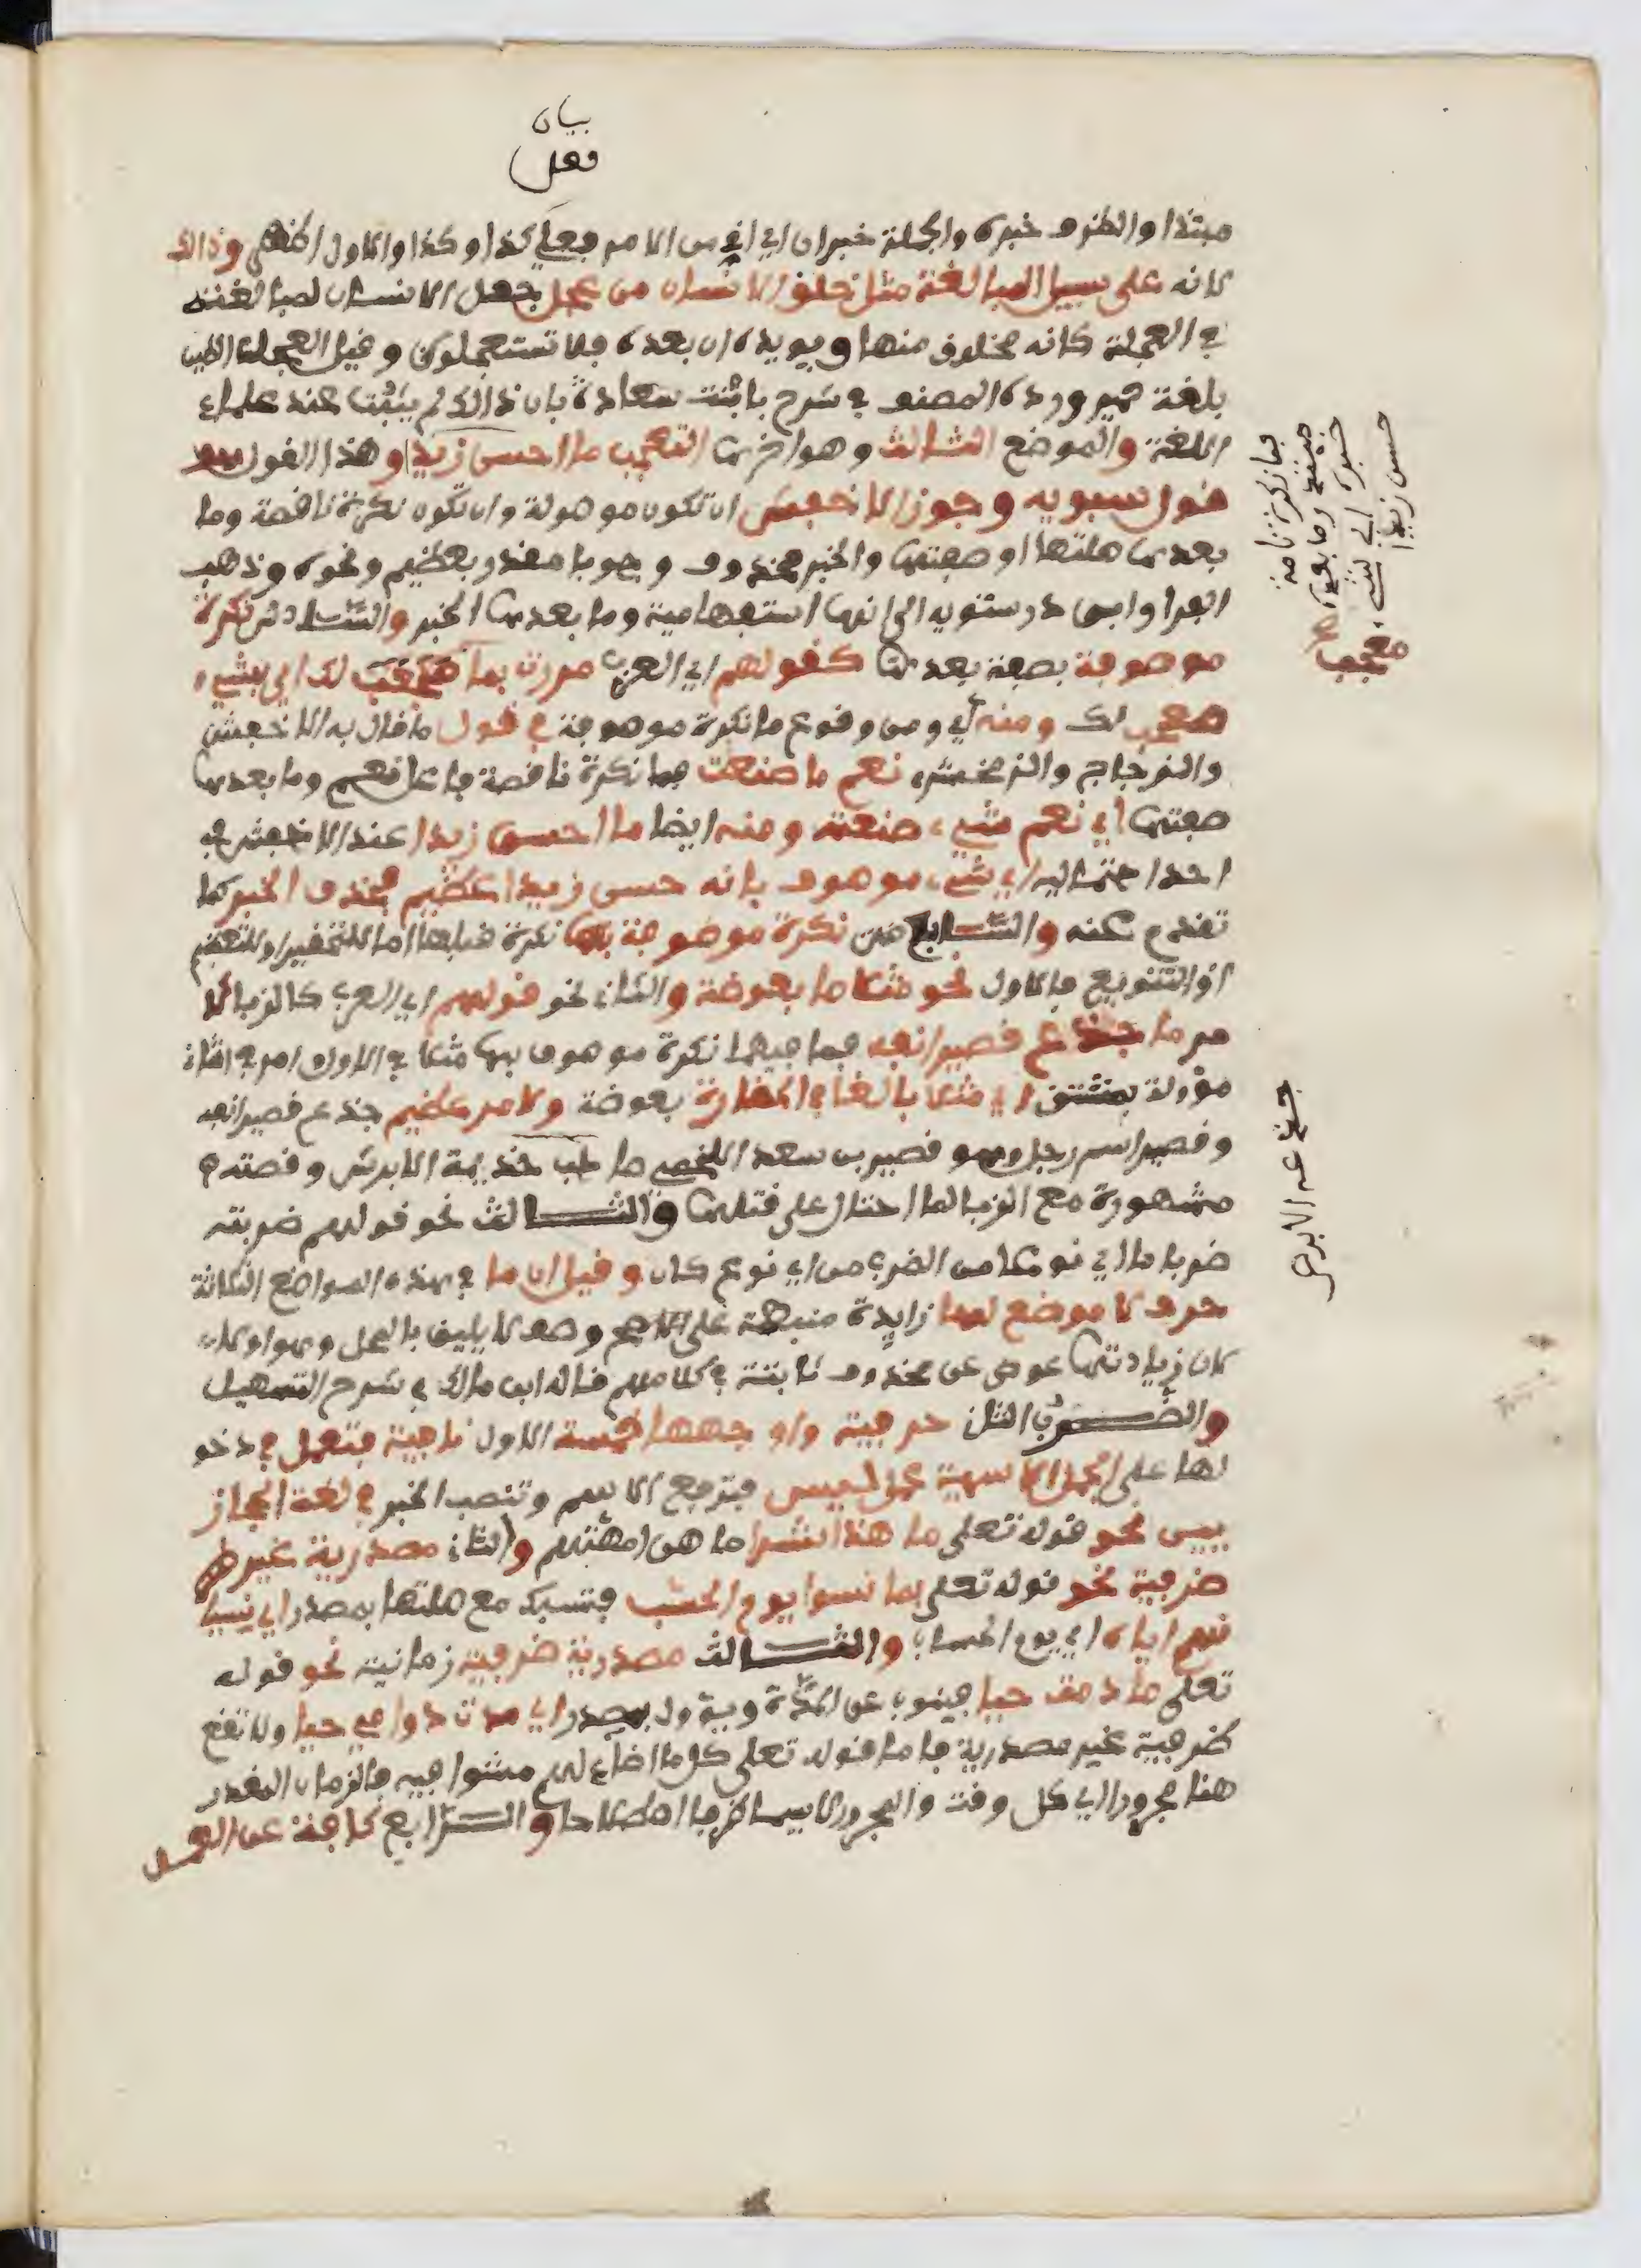 بيان
فعل
مبتدا والظرف خبره والجملة خبران اي اني من الامر فعلي كذا وكذا والاول اظهر وذالك
لانه على سبيل المبالغة مثل خلق الانسان من عجل جعل الانسان لمبالغته
في العجلة كانه مخلوق منها ويويده ان بعده فلا تستعجلون وقيل العجلة الطين
بلغة حمير ورده المصنف في شرح بانت سعاد بان ذالك لم يثبت عند علماء
اللغة والموضع الثالث وهو اخرها التعجب ما احسن زيدا وهذا القول هو
قول سبويه وجوز الاخفش ان تكون موصولة وان تكون نكرة ناقصة وما
بعدها صلتها او صفتها والخبر محذوف وجوبا مقدر بعظيم ونحوه وذهب
الفرا وابن درستويه الى انها استفهامية وما بعدها الخبر والسادس نكرة
موصوفة بصفة بعدها كقولهم اي العرب مررت بما معجب لك اي بشيء
معجب لك ومنه اي ومن وقوع ما نكرة موصوفة في قول ما قال به الاخفش
والزجاج والزمخشري نعم ما صنعت فما نكرة ناقصة فاعل نعم وما بعدها
صفتها اي نعم شيء صنعته ومنه ايضا ما احسن زيدا عند الاخفش في
احد احتماليه اي شيء موصوف بانه حسن زيدا عظيم فحذف الخبر كما
تقدم عنه والسابع نكرة موصوفة بها نكرة قبلها اما للتحقير او للتعظيم
او التنويع فالاول نحو مثلا ما بعوضة والثاني نحو قولهم اي العرب كالزبا لا
مر ما جدع قصير انفه فما فيهما نكرة موصوف بها مثلا في الاول امر في الثاني
مؤولة بمشتق اي مثلا بالغا في الحقارة بعوضة ولامر عظيم جدع قصير انفه
وقصير اسم رجل وهو قصير بن سعد اللخمي صاحب جذيمة الابرش وقصته
مشهورة مع الزبا لما احتال على قتلها والثالث نحو قولهم ضربته
ضربا ما اي نوعا من الضرب من اي نوع كان وقيل ان ما في هذه المواضع الثلاثة
حرف لا موضع لها زايدة منبهة على وصف لا يليق بالمحل وهو اولى
لان زيادتها عوض عن محذوف ثابتة في كلامهم قاله ابن مالك في شرح التسهيل
والضرب الثان حرفية واوجهها خمسة الاول نافية فتعمل في دخو
لها على الجمل الاسمية عمل ليس فترفع الاسم وتنصب الخبر في لغة الحجاز
يين نحو قوله تعلى ما هذا بشرا ما هن امهتهم والثاني مصدرية غير ظر
ضرفية نحو قوله تعلى بما نسوا يوم الحسب فتسبك مع صلتها بمصدر اي نسيا
نهم اياه اي يوم الحساب والثالث مصدرية ضرفية زمانية نحو قوله
تعلى ما دمت حيا فينوب عن المدة ويؤول بمصدر اي مدت دوامي حيا ولا تقع
ظرفية غير مصدرية فاما قوله تعلى كل ما اضاء لهم مشوا فيه فالزمان المقدر
هنا مجرور اي كل وقت والمجرور لا يسما ظرفا اصطلاحا والرابع كافة عن العمل
فما نكرة تامة
مبتدا وما بعده
خبره اي شيء
حسن زيدا
معجب
جذيمة الابرش